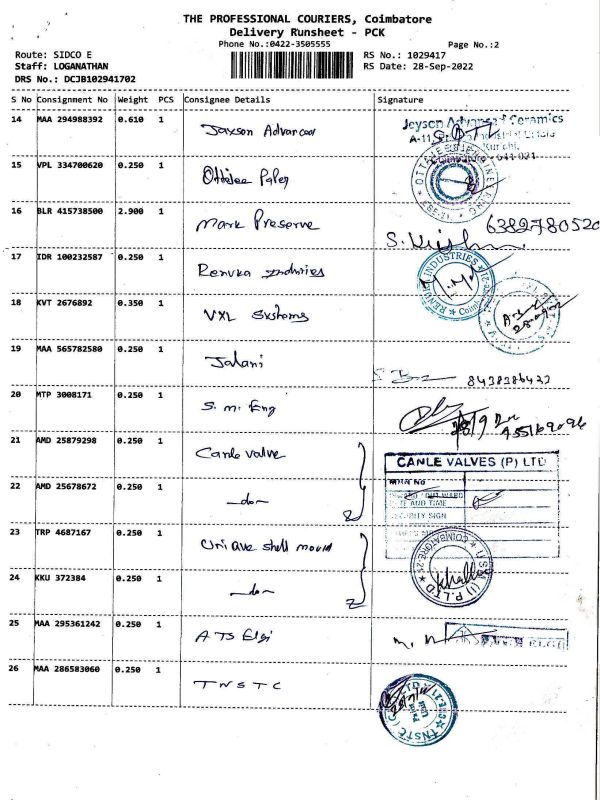 THE PROFESSIONAL COURIERS, Coimbatore
Delivery Runsheet - PCK
Phone No.:0422-3505555
Page No.:2
Route: SIDCO E
RS No.: 1029417
Staff: LOGANATHAN
RS Date: 28-Sep-2022
DRS No.: DCJB102941702
S No Consignment No Weight PCS Consignee Details Signature
14 MAA 294988392 0.610 1 Jayson Advanced
Jeyson Advanced Ceramics
15 VPL 334700620 0.250 1
16 BLR 415738500 2.900 1 Mark Preserve
6382780520
17 IDR 100232587 0.250 1 Renuka
RENUKA INDUSTRIES
18 KVT 2676892 0.350 1 VXL Systems
19 MAA 565782580 0.250 1 Jalani
20 MTP 3008171 0.250 1 S. M. Eng
21 AMD 25879298 0.250 1 Canle valve
CANLE VALVES (P) LTD
22 AMD 25678672 0.250 1 -do-
AND TIME
SECURITY SIGN
23 TRP 4687167 0.250 1 shell mould
24 KKU 372384 0.250 1 -do-
25 MAA 295361242 0.250 1 ATS Elgi
26 MAA 286583060 0.250 1 TNSTC